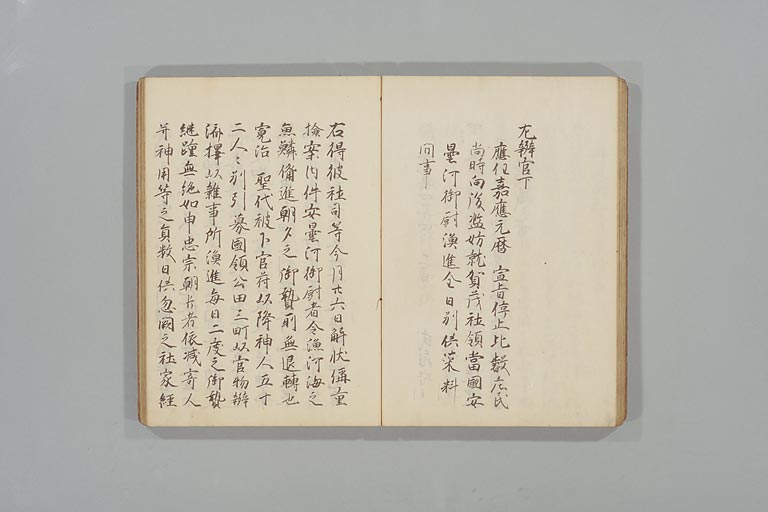 左辨官下
應任嘉應元暦 宣旨停止比叡庄民
尚時向後濫妨就賀茂社領當國安
曇河御厨漁進全日別供菜料
同事
右得彼社司等今月廿六日解状偁重
撿案内件安曇河御厨者令漁河海之
魚鱗備進朝夕之御贄前無退轉也
寛治 聖代被下官符以降神人五十
二人々別引募國領公田三町以官物辨
濟擇以雜事所漁進毎日二度之御贄
継踵無絶如申忠宗朝臣者依减寄人
并神用等之負数日供忽闕之社家經